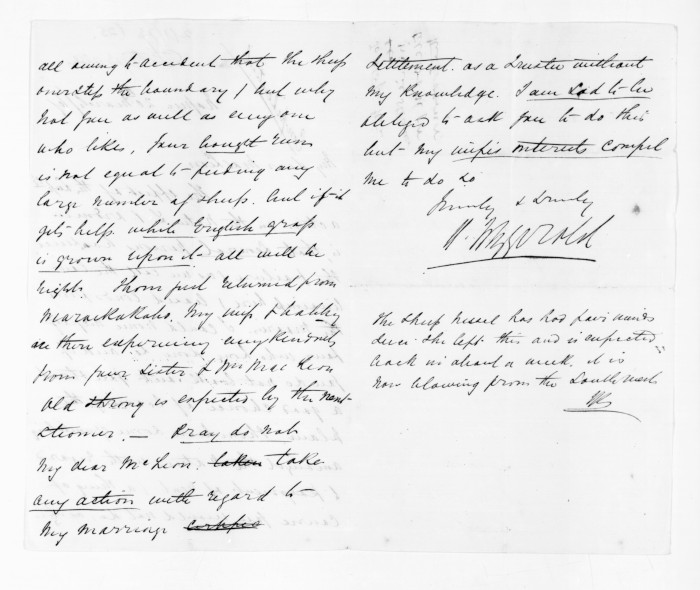 all owing to accident that the sheep
overstep the boundary / but why
not you as well as any one
who likes, Your bought run
is not equal to feeding any
large number of sheep. but if it
gets help while English grass
is grown upon it all will be
right. I have just returned from
Maraekakaho. My wife & baby
are there experiencing any kindness
from your Sister & Mr Mac Lean
Old Strong is expected by the next
Steamer. — Pray do not
My dear McLean. taken take
any action with regard to
My marriage
Settlement. as a Trustee without
My Knowledge. I am Sad to be
obliged to ask you to do this
but My wife's interests compel
Me to do so
Truly & Truly
Fitzgerald
The Sheep vessel has had fair winds
since She left this and is expected
back in about a week. it is
now blowing from the South west